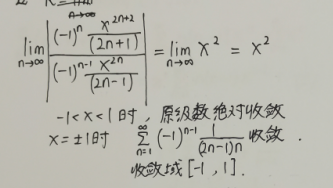 lim_{n→∞} | (-1)^n \frac{x^{2n+2}}{(2n+1)} / (-1)^{n-1} \frac{x^{2n}}{(2n-1)} | = lim_{n→∞} x^2 = x^2
-1<x<1时，原级数绝对收敛
x=±1时 \sum_{n=1}^{∞} (-1)^{n-1} \frac{1}{(2n-1)n} 收敛.
收敛域[-1,1].